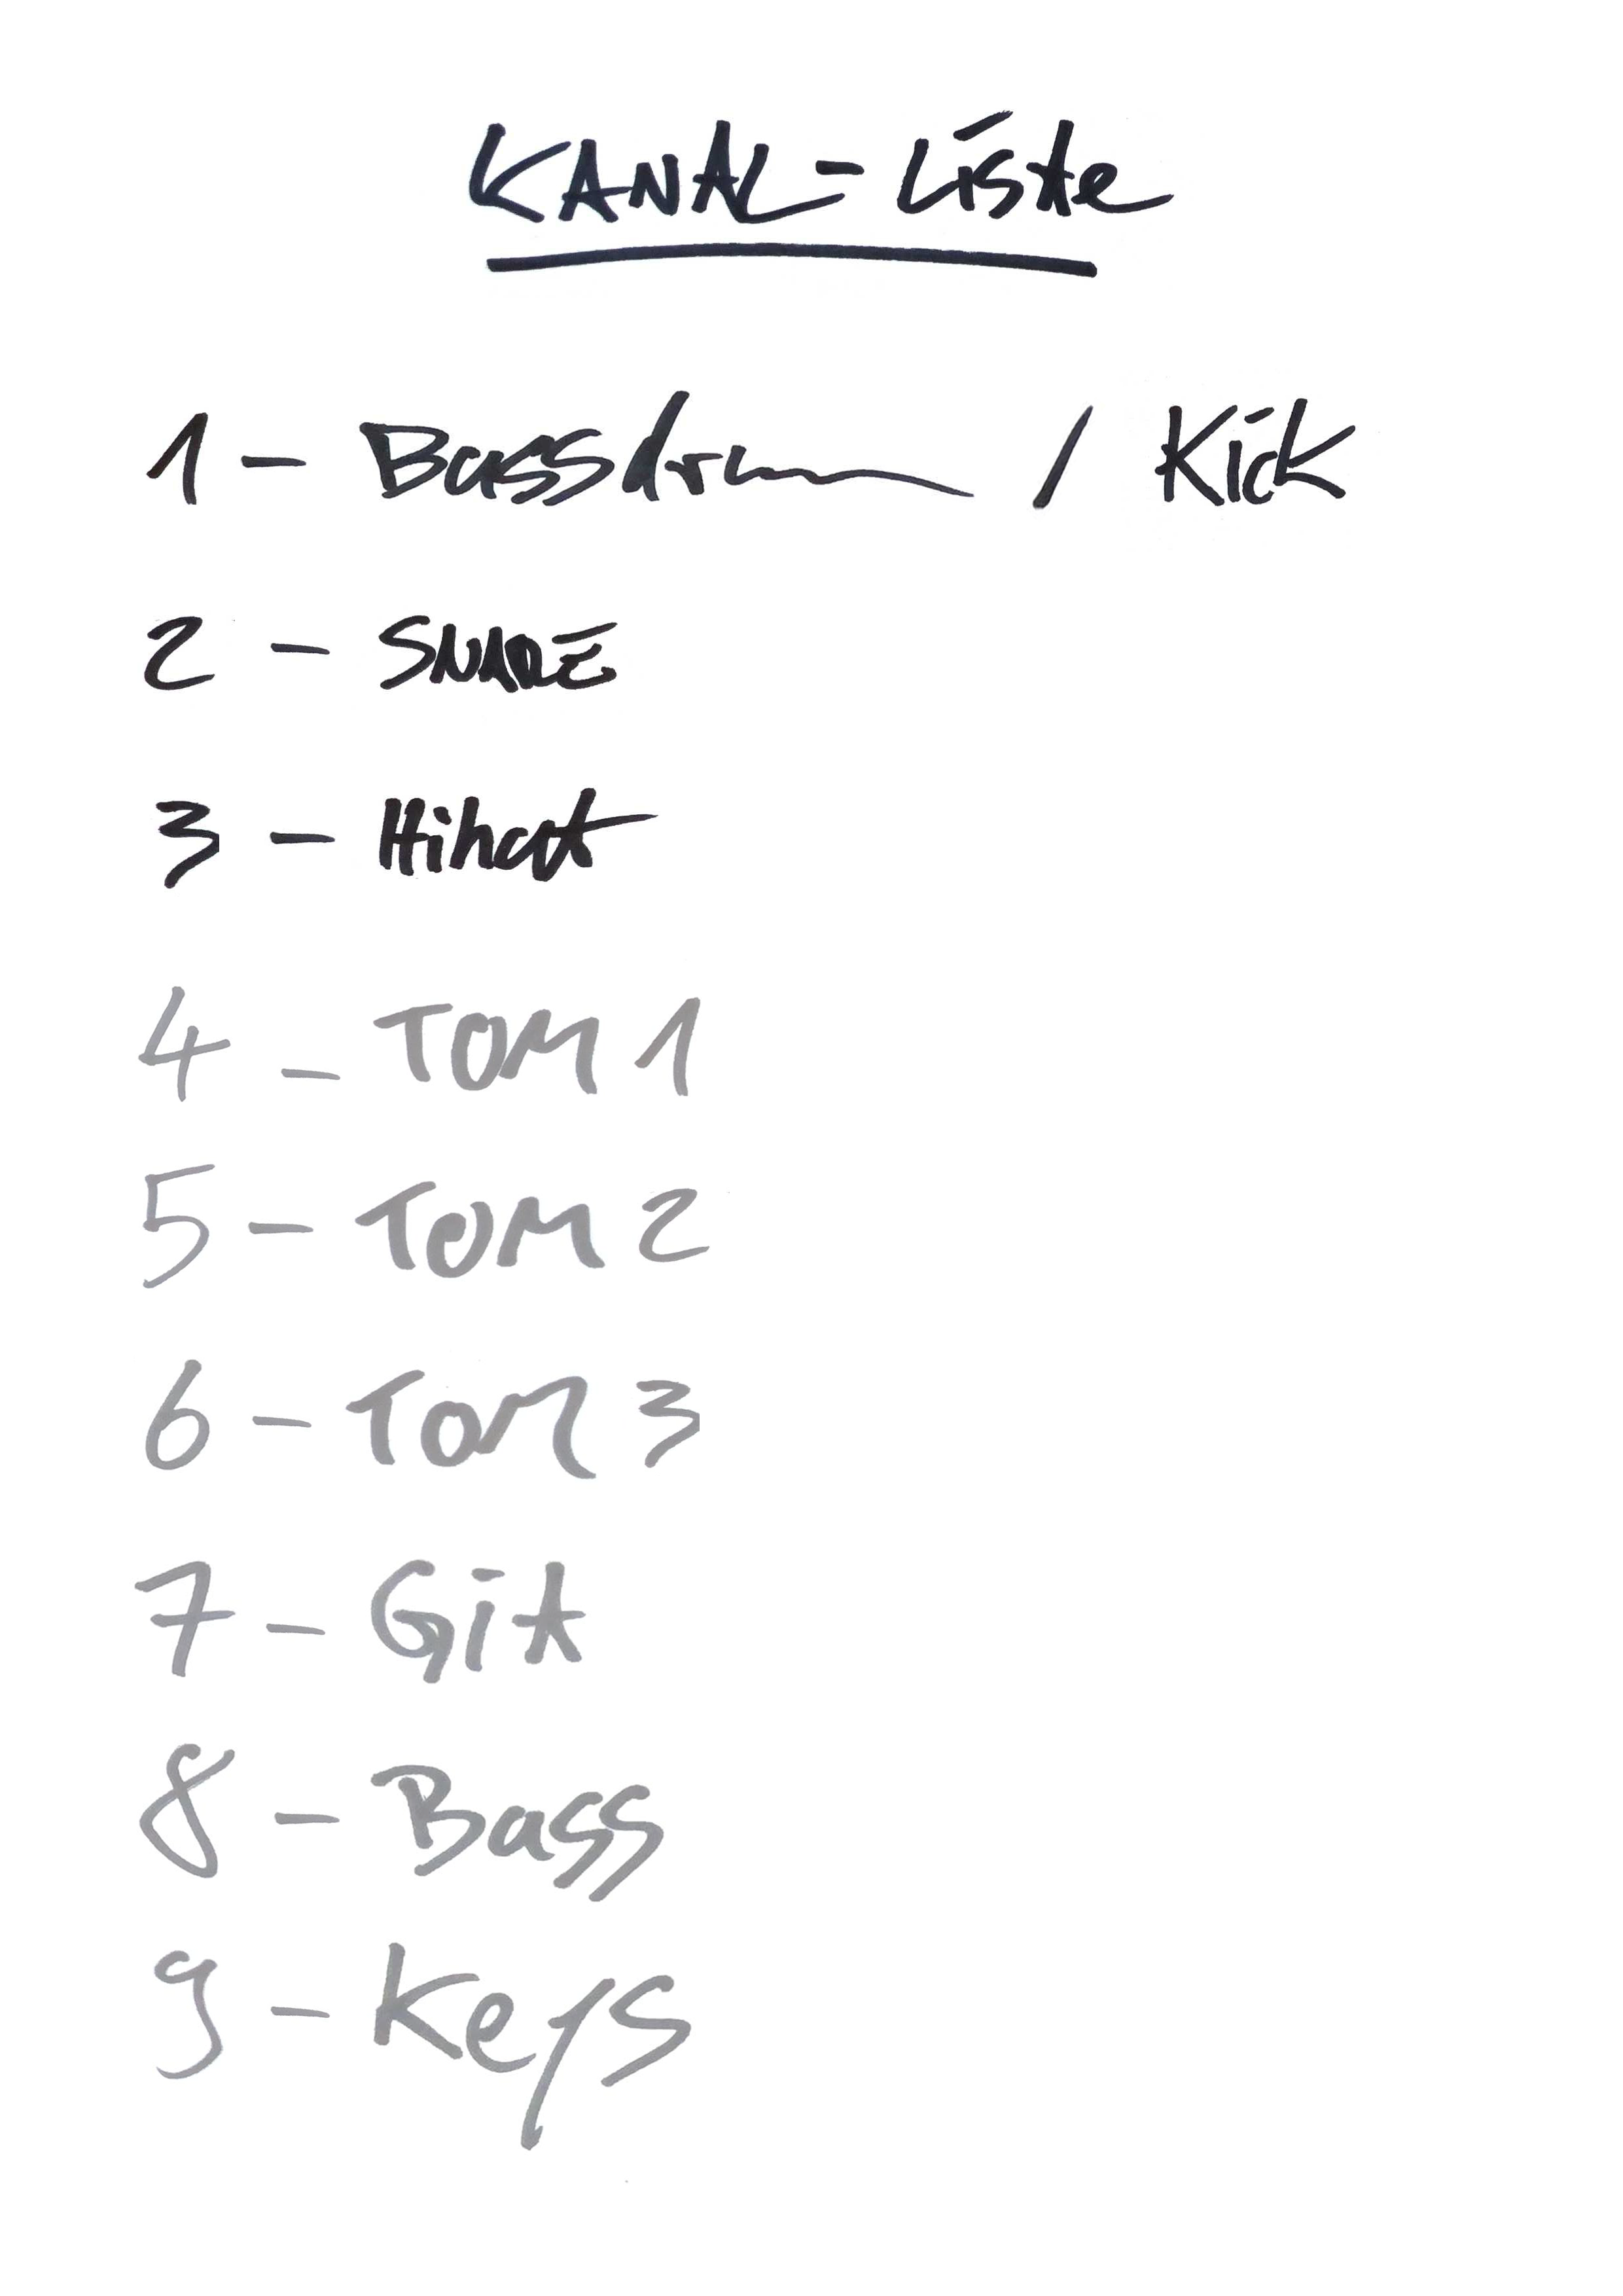 KANAL-Liste
1 - Bassdrum / Kick
2 - SNARE
3 - Hihat
4 - TOM 1
5 - TOM 2
6 - TOM 3
7 - Git
8 - Bass
9 - Keys